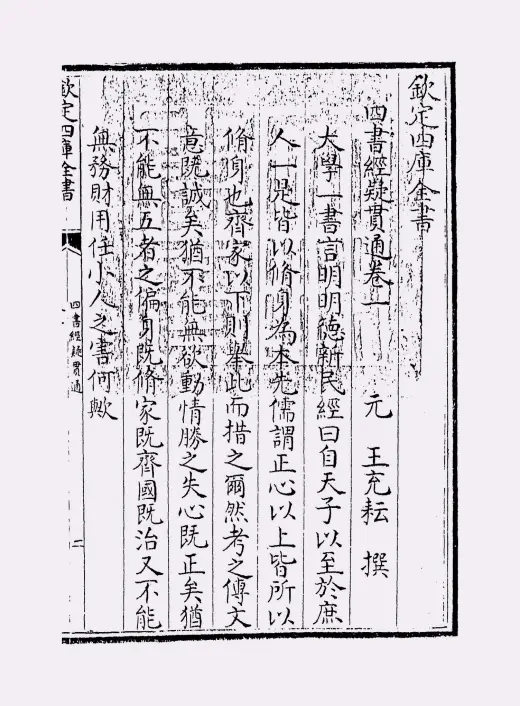 欽定四庫全書
四書經疑貫通卷一 元 王充耘 撰
大學一書言明明德新民經曰自天子以至於庶
人一是皆以脩身為本先儒謂正心以上皆所以
脩身也齊家以下則舉此而措之爾然考之傳文
意既誠矣猶不能無欲動情勝之失心既正矣猶
不能無五者之偏身既脩家既齊國既治又不能
無務財用任小人之害何歟
欽定四庫全書
四書經疑貫通
二